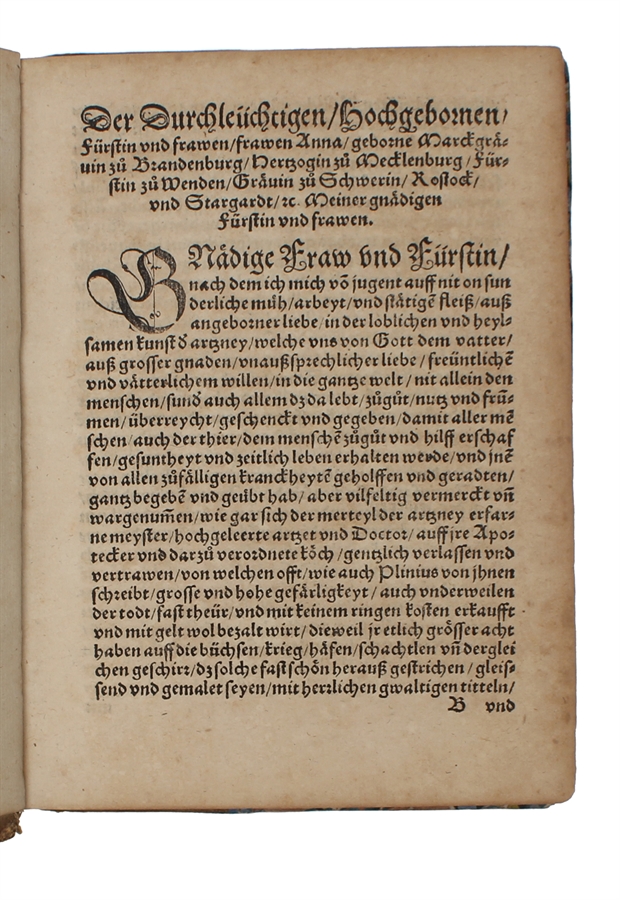 Der Durchleüchtigen/Hochgebornen/
Fürstin vnd frawen/frawen Anna/ geborne Marckgrä⸗
uin zů Brandenburg/ Hertzogin zů Mecklenburg/ Für⸗
stin zů Wenden/Gräuin zů Schwerin/ Rostock/
vnd Stargardt/ ꝛc. Meiner gnädigen
Fürstin vnd frawen.
GNädige Fraw vnd Fürstin/
nach dem ich mich võ jugent auff nit on sun
derliche müh/arbeyt/vnd stätigẽ fleiß/auß
angeborner liebe/in der loblichen vnd heyl⸗
samen kunst d̕ artzney/welche vns von Gott dem vatter/
auß grosser gnaden/vnaußsprechlicher liebe/ freüntlichẽ
vnd vätterlichem willen/in die gantze welt/ nit allein den
menschen/sund̕ auch allem dz da lebt/zůgůt/nutz vnd frü⸗
men/überreycht/geschenckt vnd gegeben/damit aller mẽ
schen/auch der thier/dem menschẽ zůgůt vnd hilff erschaf
fen/gesuntheyt vnd zeitlich leben erhalten werde/vnd jnẽ
von allen zůfälligen kranckheytẽ geholffen vnd geradten/
gantz begebẽ vnd geübt hab/ aber vilfeltig vermerckt vñ
wargenum̃en/wie gar sich der merteyl der artzney erfar⸗
ne meyster/hochgeleerte artzet vnd Doctor/ auff jre Apo⸗
tecker vnd darzů verordnete köch/gentzlich verlassen vnd
vertrawen/von welchen offt/wie auch Plinius von jhnen
schreibt/grosse vnd hohe gefärligkeyt/ auch vnderweilen
der todt/fast theür/vnd mit keinem ringen kosten erkaufft
vnd mit gelt wol bezalt wirt/dieweil jr etlich grösser acht
haben auff die büchsen/krieg/häfen/schachtlen vñ derglei
chen geschirr/dz solche fast schön herauß gestrichen/gleis⸗
send vnd gemalet seyen/mit herrlichen gwaltigen titteln/
B vnd